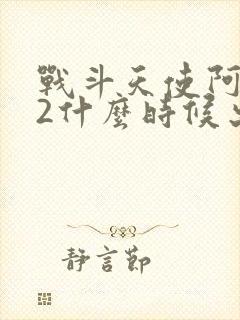 戰斗天使阿
2什麼時候
靜言節